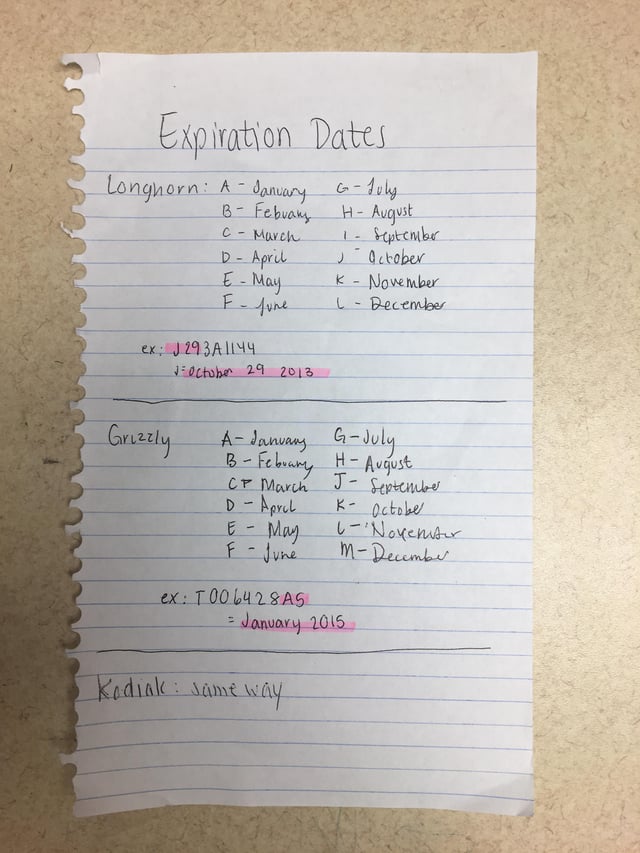 Expiration Dates
Longhorn: A - January G - July
B - Febuary H - August
C - March I - September
D - April J - October
E - May K - November
F - June L - December
ex: J293A1144
J = October 29 2013
Grizzly A - January G - July
B - Febuary H - August
C - March J - September
D - April K - October
E - May L - November
F - June M - December
ex: T006428A5
= January 2015
Kodiak: same way